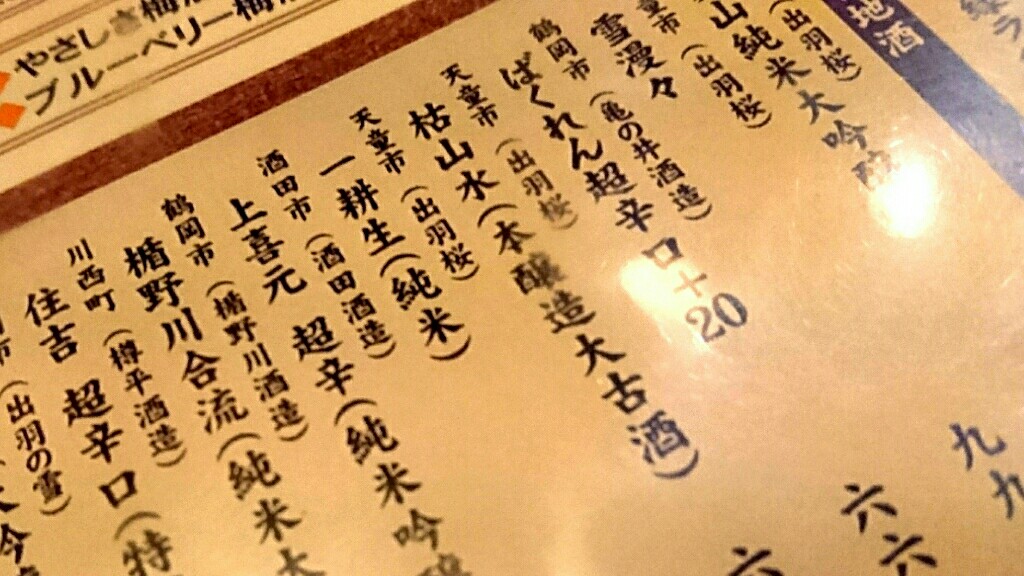 地酒
(出羽桜)
山純米大吟醸
(出羽桜)
雪漫々
鶴岡市 (亀の井酒造)
ばくれん超辛口+20
天童市 (出羽桜)
枯山水(本醸造大古酒)
天童市 (出羽桜)
一耕生(純米)
酒田市 (酒田酒造)
上喜元 超辛(純米吟醸
鶴岡市 (楯野川酒造)
楯野川合流(純米大
川西町 (樽平酒造)
住吉 超辛口(特
(出羽の雪)
九九
六六
六
やさしさ梅酒
ブルーベリー梅酒